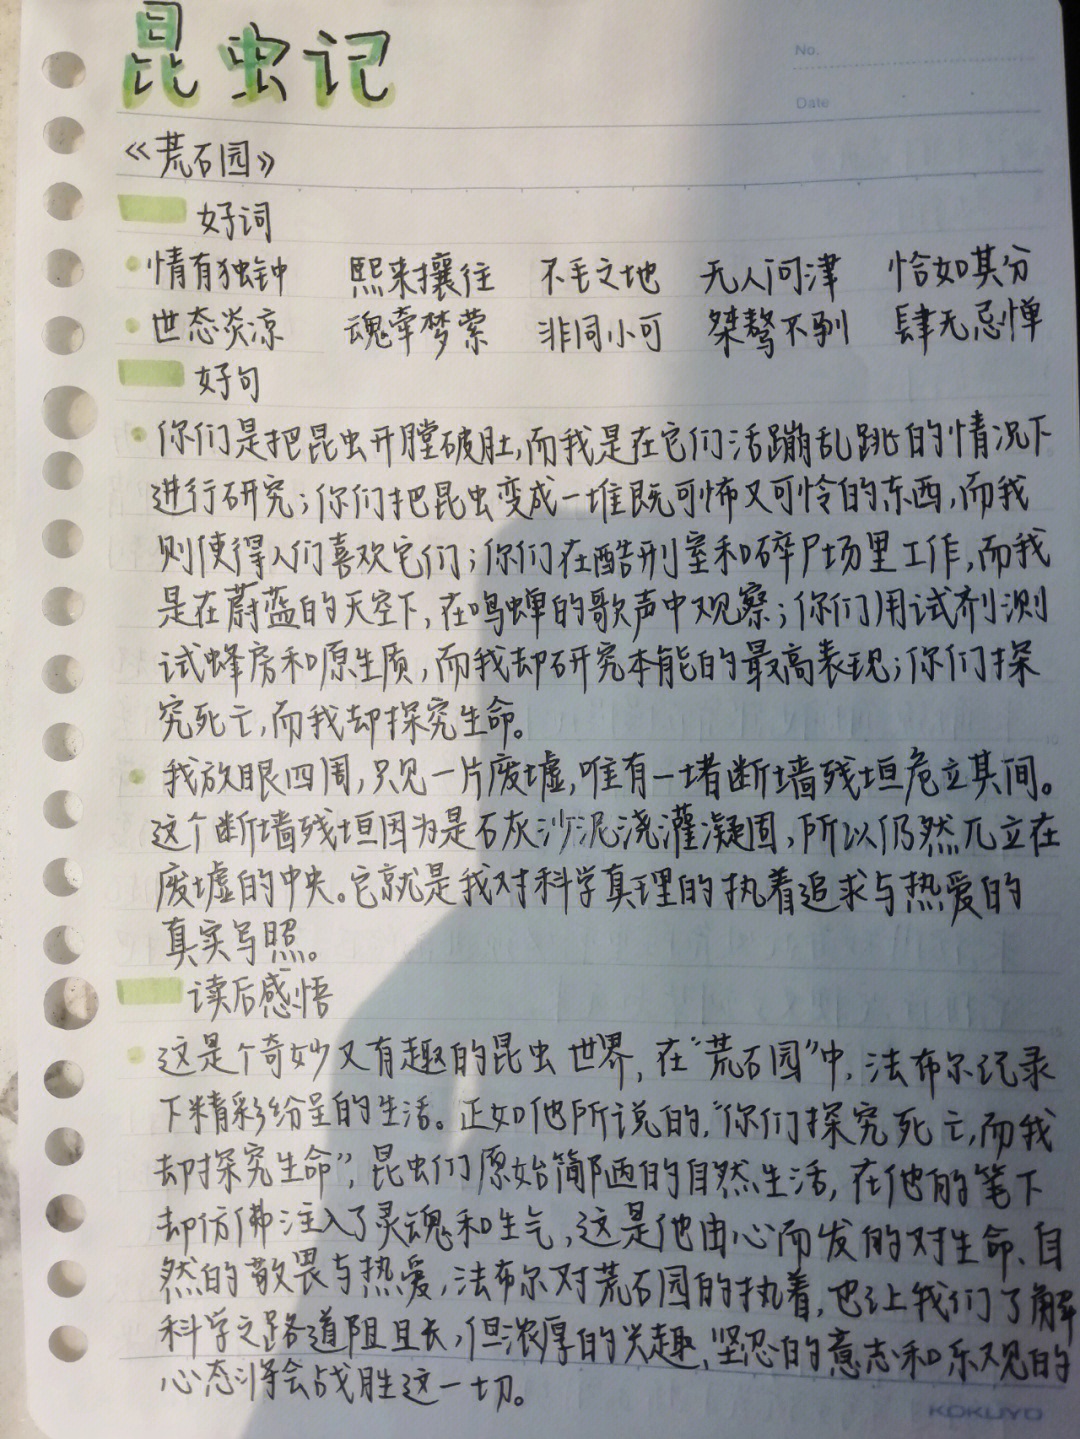 昆虫记
No.
Date
《荒石园》
好词
情有独钟 熙来攘往 不毛之地 无人问津 恰如其分
世态炎凉 魂牵梦萦 非同小可 桀骜不驯 肆无忌惮
好句
你们是把昆虫开膛破肚,而我是在它们活蹦乱跳的情况下
进行研究;你们把昆虫变成一堆既可怖又可怜的东西,而我
则使得人们喜欢它们;你们在酷刑室和碎尸场里工作,而我
是在蔚蓝的天空下,在鸣蝉的歌声中观察;你们用试剂测
试蜂房和原生质,而我却研究本能的最高表现;你们探
究死亡,而我却探究生命。
我放眼四周,只见一片废墟,唯有一堵断墙残垣危立其间。
这个断墙残垣因为是石灰沙泥浇灌凝固,所以仍然兀立在
废墟的中央。它就是我对科学真理的执着追求与热爱的
真实写照。
读后感悟
这是个奇妙又有趣的昆虫世界,在“荒石园”中,法布尔记录
下精彩纷呈的生活。正如他所说的,“你们探究死亡,而我
却探究生命”,昆虫们原始简陋的自然生活,在他的笔下
却仿佛注入了灵魂和生气,这是他由心而发的对生命、自
然的敬畏与热爱,法布尔对荒石园的执着,也让我们了解
科学之路道阻且长,但浓厚的兴趣、坚忍的意志和乐观的
心态将会战胜这一切。
KOKUYO